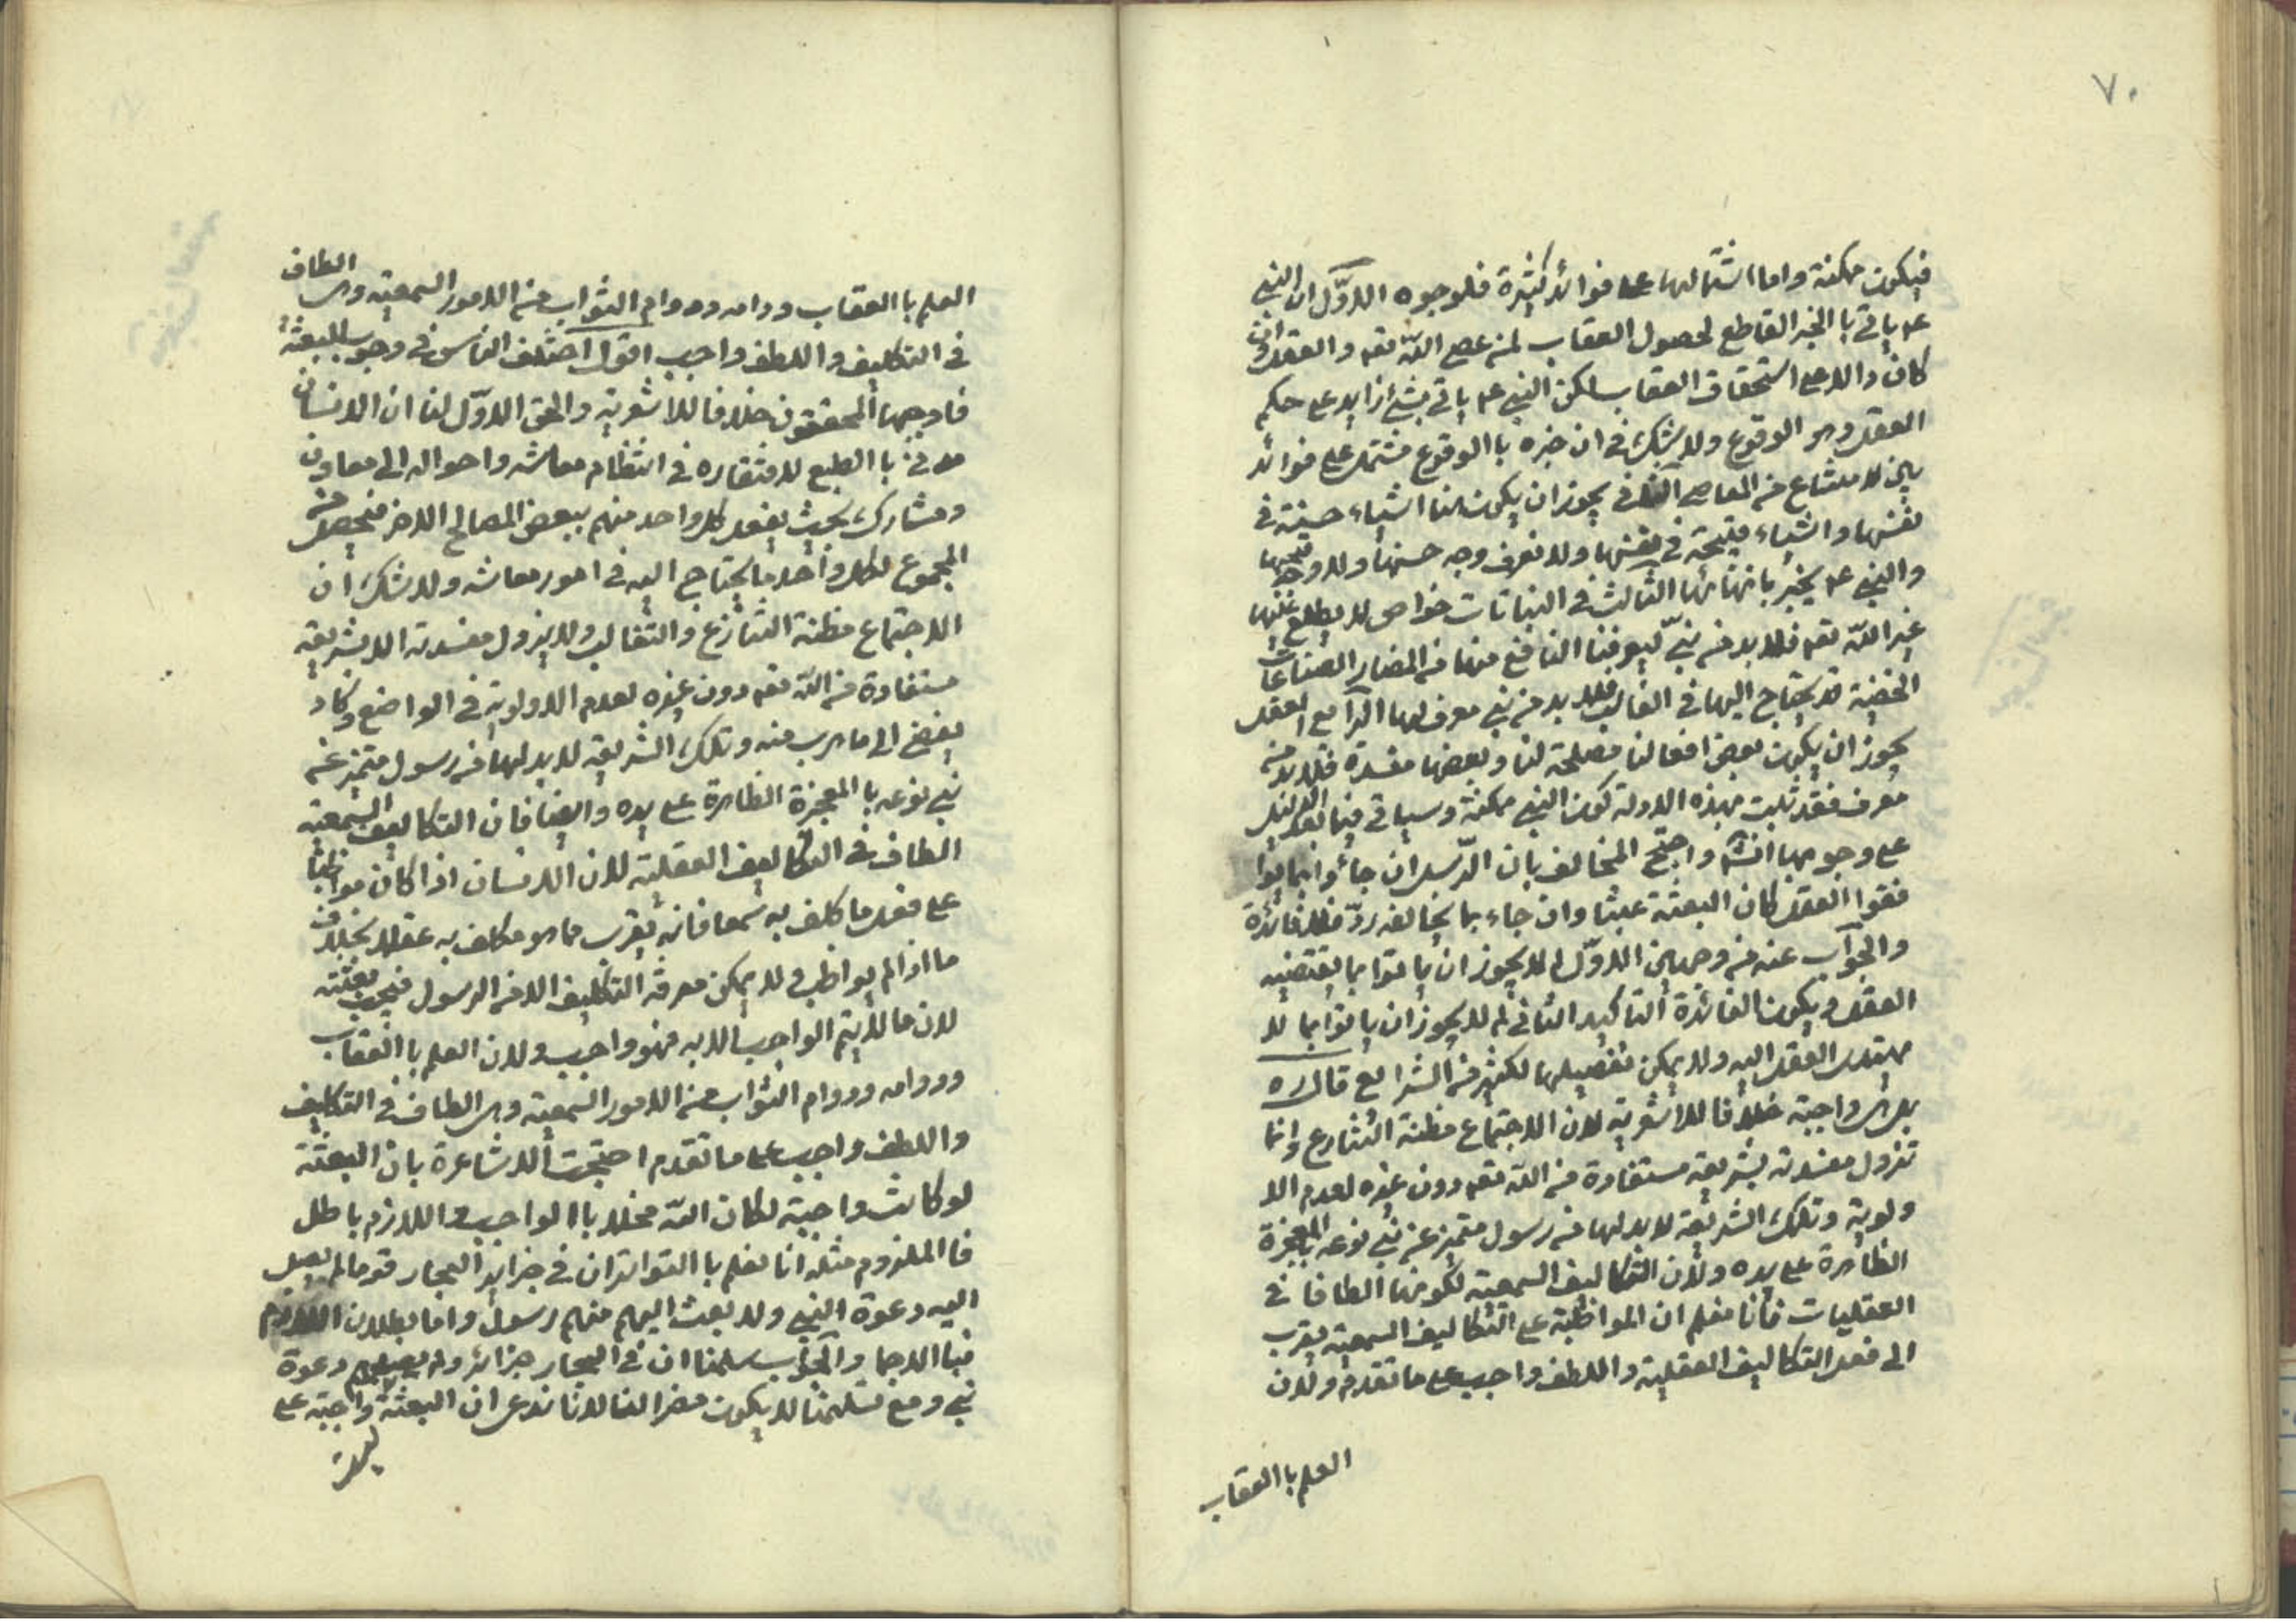 ٧٠
فيكون ممكنة واما اشتمالها على فوائد كثيرة فلوجوه الاوّل ان النبي
عم ياتي با الخبر القاطع لحصول العقاب لمن عصى اللّه تعم والعقل وان
كان دالا على استحقاق العقاب لكن النبي عم ياتي بشئ زايد على حكم
العقل وهو الوقوع ولا شك في ان خبره با الوقوع مشتمل على فوائد
الامتناع من المعاصي الثاني يجوز ان يكون لنا اشياء حسنة في
نفسها واشياء قبيحة في نفسها ولا نعرف وجه حسنها ولا وجه قبحها
والنبي عم يخبر بانهائها الثالث في النباتات خواص لا يطلع عليها
غير اللّه تعم فلا بد من نبيّ ليعرفنا النافع منها من المضار الصناعات
الخفية قد يحتاج اليها في الغالب فلا بد من نبي معرف لها الرابع العقل
يجوز ان يكون بعض افعالنا مصلحة لنا وبعضها مفسدة فلا بد من
معرف فقد ثبت بهذه الادلة كون النبي ممكنة وسياتي فيما بعد الدليل
على وجوبها انشم واحتج المخالف بان الرّسل ان جاؤا بما يوا
فقوا العقل كان البعثة عبثا وان جاء بما يخالفه ردّ فلا فائدة
والجواب عنه من وجهين الاوّل لم لا يجوز ان ياتوا بما يقتضيه
العقل ويكون الفائدة التاكيد الثاني لم لا يجوز ان ياتوا بما لا
يهتدى العقل اليه ولا يمكن تفصيلها لكثير من الشرايع قال ره
بل هي واجبة خلافا للاشعرية لان الاجتماع مظنة التنازع وانما
تزول مفسدته بشريعة مستفادة من اللّه تعم دون غيره لعدم الا
ولوية وتلك الشريعة لا بد لها من رسول متميز عن بني نوعه بالمعجزة
الظاهرة على يده ولان التكاليف السمعية لكونها الطافا في
العقليات فانا نعلم ان المواظبة على التكاليف السمعية يقرب
الى فعل التكاليف العقلية واللطف واجب على ما تقدم ولان
العلم با العقاب
العلم با العقاب ودوامه ودوام الثواب من الامور السمعية وهي الطاف
في التكليف واللطف واجب اقول اختلف الناس في وجوب البعثة
فاوجبها المحققون خلافا للاشعرية والحق الاوّل لنا ان الانسان
مدني با الطبع لافتقاره في انتظام معاشه واحواله الى معاون
ومشارك بحيث يفعل كل واحد منهم ببعض المصالح الاخر فيحصل من
المجموع لكل واحد ما يحتاج اليه في امور معاشه ولا شك ان
الاجتماع مظنة التنازع والتغالب ولا يزول مفسدته الا بشريعة
مستفادة من اللّه تعم دون غيره لعدم الاولوية في الواضع وكاد
يفضى الى ما هرب منه وتلك الشريعة لا بد لها من رسول متميز عن
بني نوعه با المعجزة الظاهرة على يده وايضا فان التكاليف السمعية
الطاف في التكاليف العقلية لان الانسان اذا كان مواظبا
على فعل ما كلف به سمعا فانه يقرب مما هو مكلف به عقلا بخلاف
ما اذا لم يواظب ولا يمكن معرفة التكليف الا من الرسول فيجب بعثته
لان ما لا يتم الواجب الا به فهو واجب ولان العلم با العقاب
ودوامه ودوام الثواب من الامور السمعية وهي الطاف في التكليف
واللطف واجب على ما تقدم احتجت الاشاعرة بان البعثة
لو كانت واجبة لكان اللّه مخلا با الواجب واللازم باطل
فا الملزوم مثله انا نعلم با التواتر ان في جزاير البحار قوما لم يصل
اليه دعوة النبي ولا بعث اليهم منهم رسول واما بطلان اللازم
فبا الاجماع والجواب سلمنا ان في البحار جزائر ولم يصلهم دعوة
نبي ومع تسليمنا لا يكون مضرا لنا لانا ندعى ان البعثة واجبة على